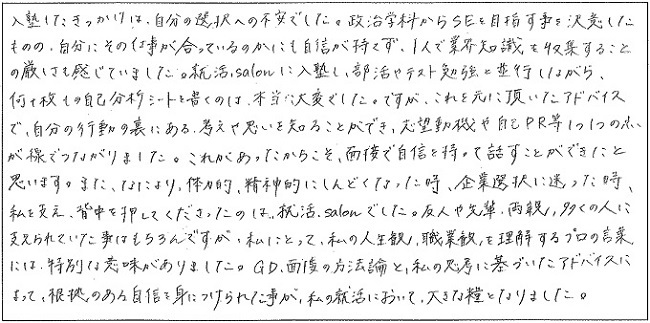 入塾したきっかけは、自分の選択への不安でした。政治学科からSEを目指す事を決意した
ものの、自分にその仕事が合っているのかにも自信が持てず、1人で業界知識を収集すること
の厳しさも感じていました。就活.salonに入塾し、部活やテスト勉強と並行しながら、
何十枚もの自己分析シートを書くのは、本当に大変でした。ですが、これを元に頂いたアドバイス
で、自分の行動の裏にある、考えや思いを知ることができ、志望動機や自己PR等1つ1つの点
が線でつながりました。これがあったからこそ、面接で自信を持って話すことができたと
思います。また、なにより、体力的、精神的にしんどくなった時、企業選択に迷った時、
私を支え、背中を押してくださったのは、就活.salonでした。友人や先輩、両親、多くの人に
支えられていた事はもちろんですが、私にとって、私の人生観、職業観を理解するプロの言葉
には、特別な意味がありました。GD、面接の方法論と、私の思考に基づいたアドバイスに
よって、根拠のある自信を身につけられた事が、私の就活において、大きな糧となりました。